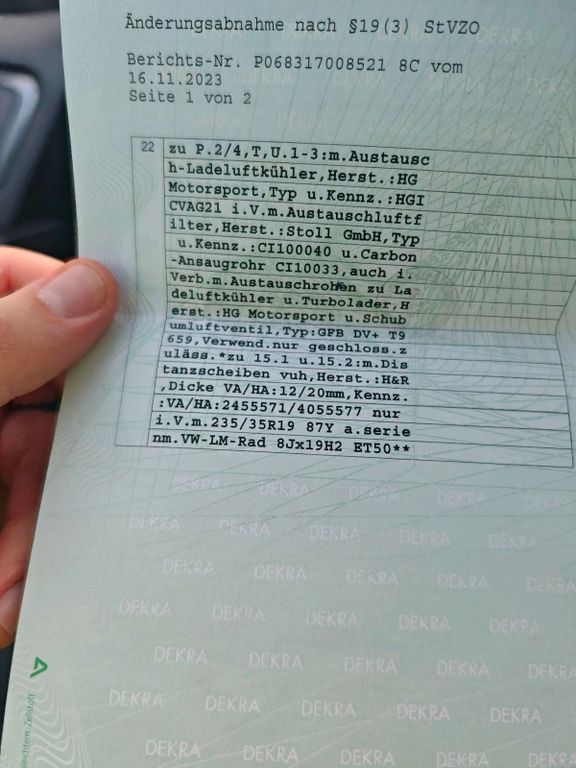 Änderungsabnahme nach §19(3) StVZO
Berichts-Nr. P068317008521 8C vom
16.11.2023
Seite 1 von 2
22
zu P.2/4,T,U.1-3:m.Austausc
h-Ladeluftkühler,Herst.:HG
Motorsport,Typ u.Kennz.:HGI
CVAG21 i.V.m.Austauschluftf
ilter,Herst.:Stoll GmbH,Typ
u.Kennz.:CI100040 u.Carbon
-Ansaugrohr CI10033,auch i.
Verb.m.Austauschrohen zu La
deluftkühler u.Turbolader,H
erst.:HG Motorsport u.Schub
umluftventil,Typ:GFB DV+ T9
659,Verwend.nur geschloss.z
uläss.*zu 15.1 u.15.2:m.Dis
tanzscheiben vuh,Herst.:H&R
,Dicke VA/HA:12/20mm,Kennz.
:VA/HA:2455571/4055577 nur
i.V.m.235/35R19 87Y a.serie
nm.VW-LM-Rad 8Jx19H2 ET50**
DEKRA DEKRA DEKRA DEKRA
DEKRA DEKRA DEKRA DEKRA DEKRA
DEKRA DEKRA DEKRA DEKRA DEKRA
DEKRA DEKRA DEKRA DEKRA DEKRA
DEKRA DEKRA DEKRA DEKRA DEKRA
DEKRA DEKRA DEKRA DEKRA DEKRA
DEKRA DEKRA DEKRA DEKRA
Zellstoff